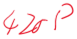 420s P